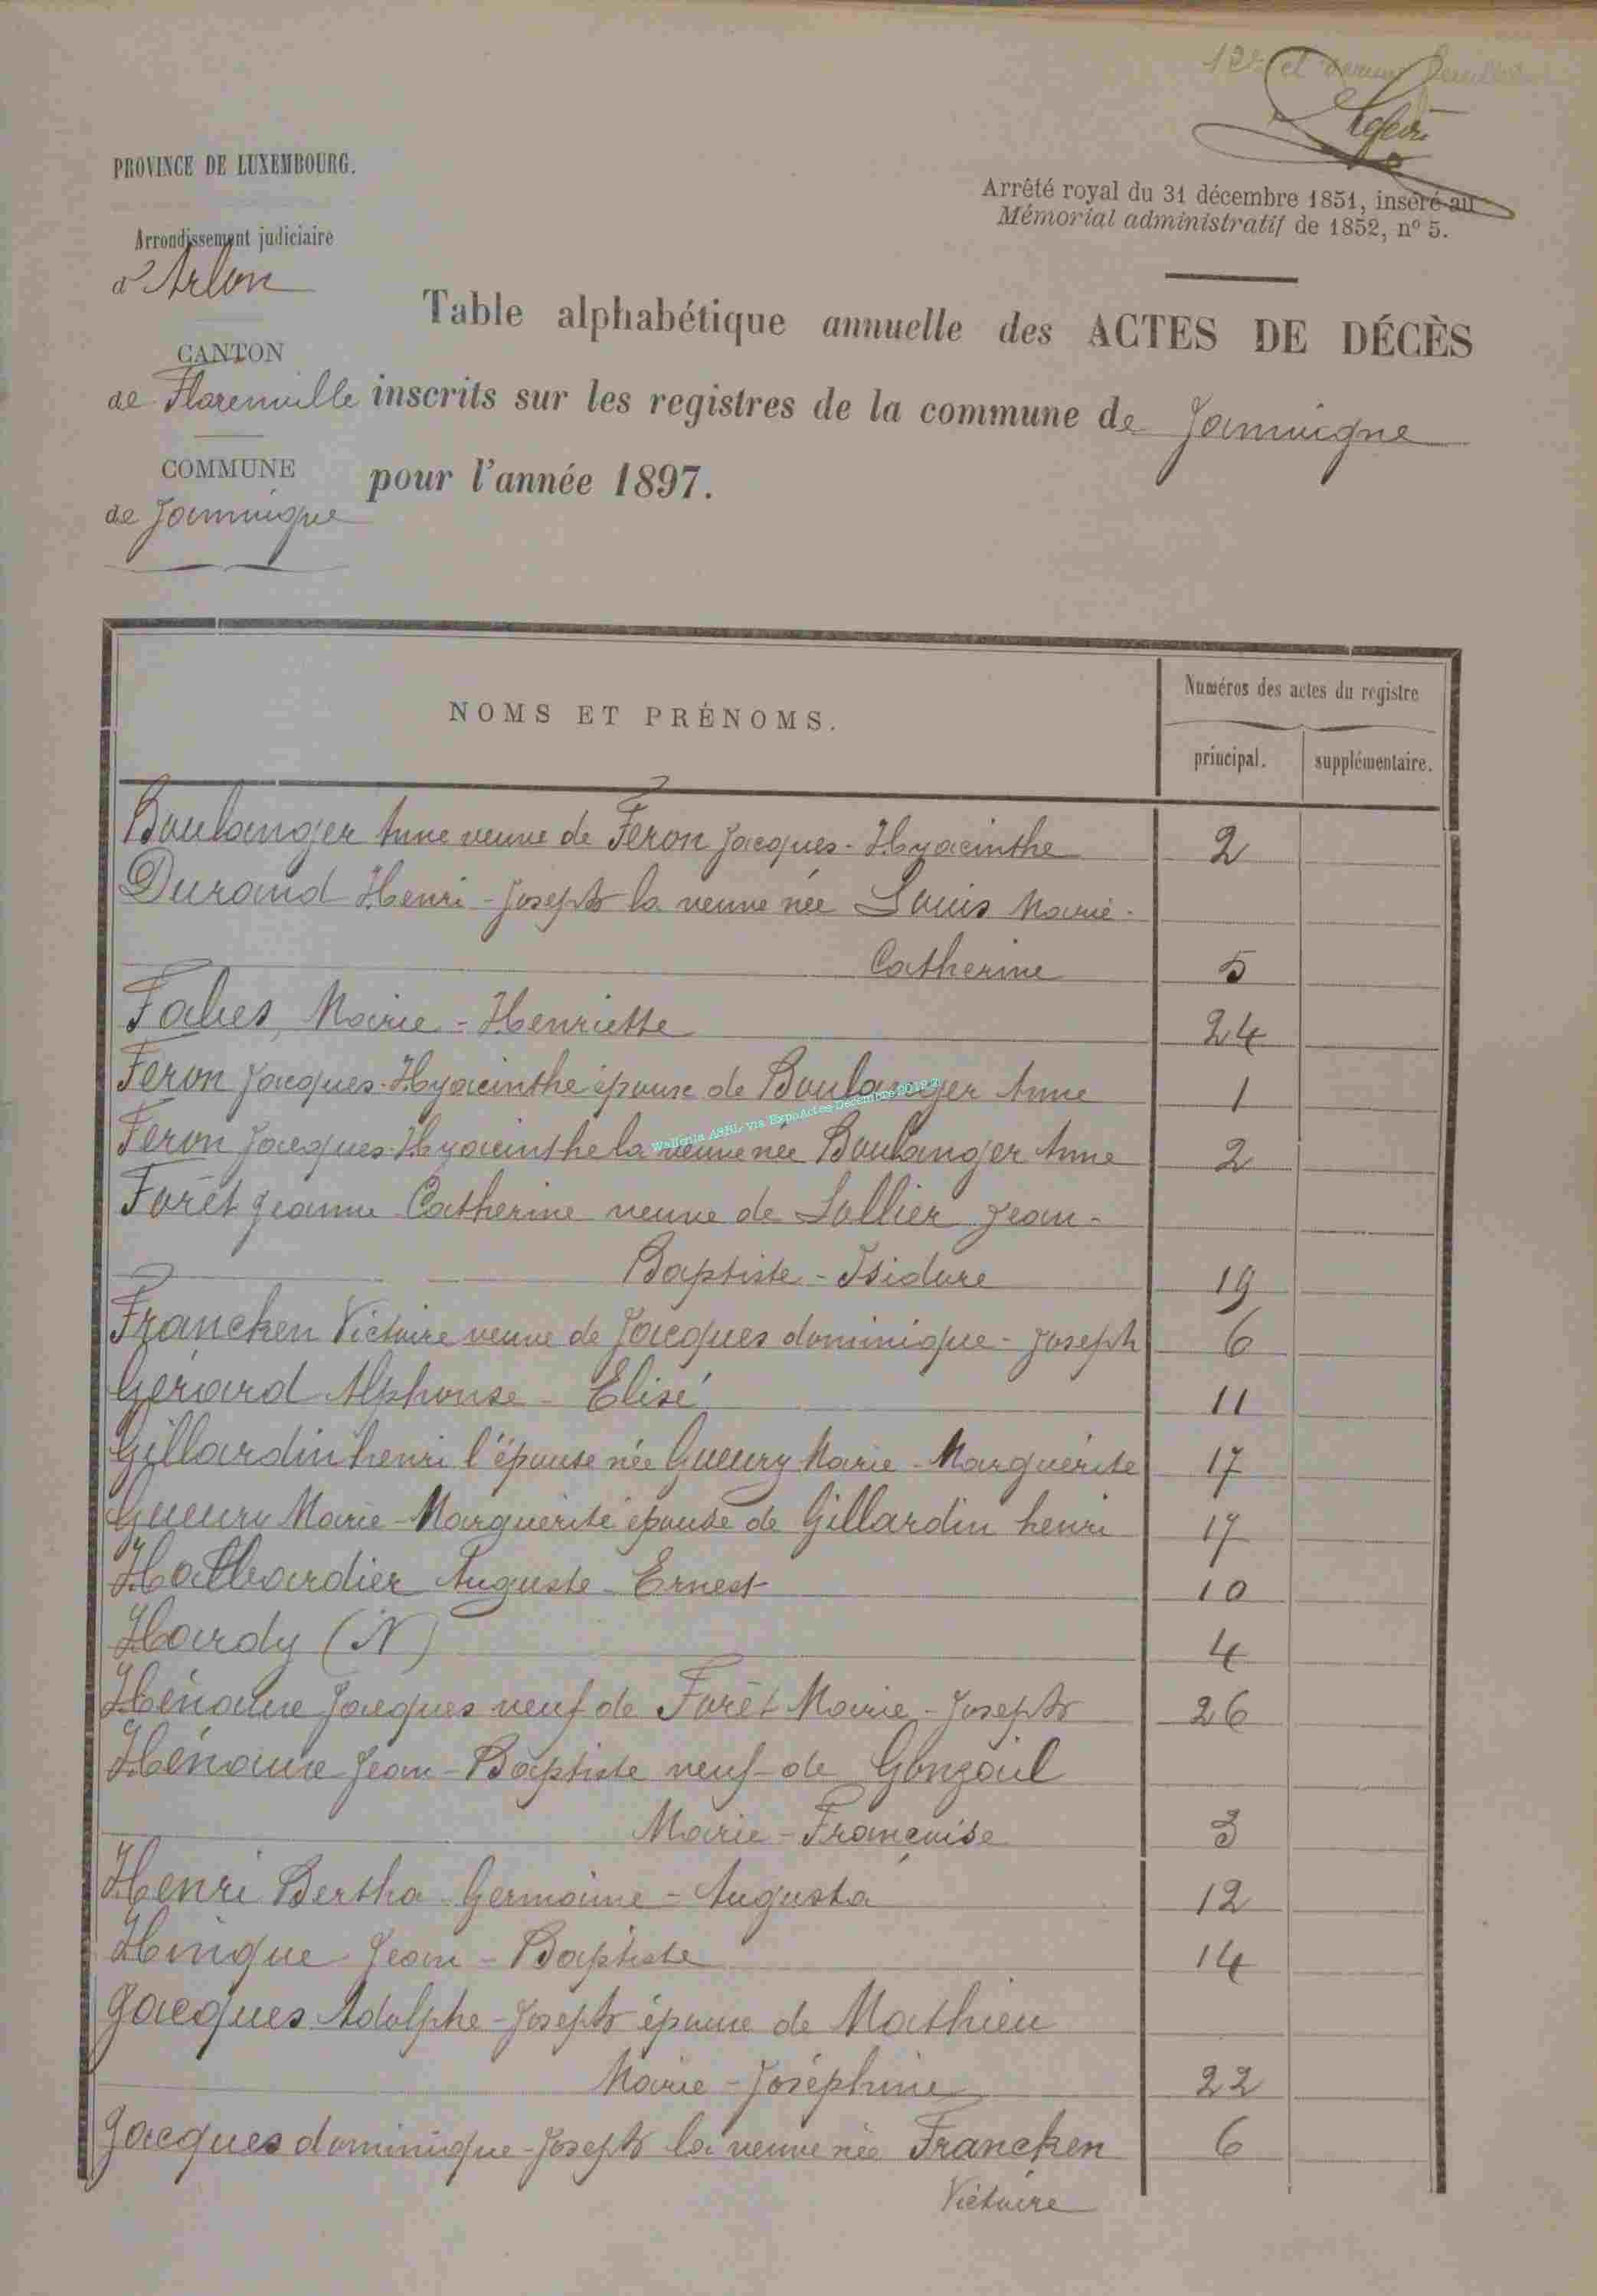 12e et dernier feuillet
PROVINCE DE LUXEMBOURG.
Arrêté royal du 31 décembre 1851, inséré au
Mémorial administratif de 1852, nº 5.
Arrondissement judiciaire
d'Arlon
Table alphabétique annuelle des ACTES DE DÉCÈS
CANTON
de Florenville inscrits sur les registres de la commune de Jamoigne
COMMUNE
pour l'année 1897.
de Jamoigne
NOMS ET PRÉNOMS.
Numéros des actes du registre
principal. supplémentaire.
Boulanger Anne veuve de Feron Jacques-Hyacinthe 2
Durand Henri-Joseph la veuve née Louis Marie-
Catherine 5
Fabes, Marie-Henriette 24
Feron Jacques-Hyacinthe époux de Boulanger Anne 1
Feron Jacques-Hyacinthe la veuve née Boulanger Anne 2
Wallonia ASBL via ExpoActes Decembre 2012
Forêt Jeanne Catherine veuve de Lallier Jean-
Baptiste-Isidore 19
Francken Victoire veuve de Jacques dominique-Joseph 6
Gérard Alphonse-Elisé 11
Gillardin henri l'épouse née Gueury Marie-Marguérite 17
Gueury Marie-Marguérite épouse de Gillardin henri 17
Hallbardier Auguste-Ernest 10
Hardy (N) 4
Hénaure Jacques veuf de Forêt Marie-Joseph 26
Hénaure Jean-Baptiste veuf de Gonzail
Marie-Françoise 3
Henri Bertha Germaine-Augusta 12
Hinque Jean-Baptiste 14
Jacques Adolphe-Joseph époux de Mathieu
Marie-Joséphine 22
Jacques dominique-Joseph la veuve née Francken 6
Victoire